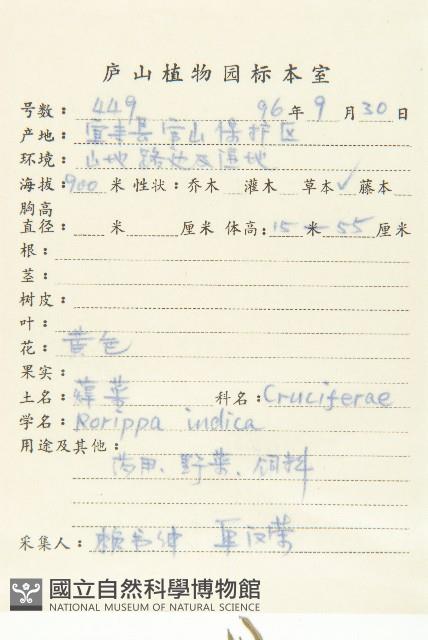 庐山植物园标本室
号数: 449 96年9月30日
产地: 宜丰县官山保护区
环境: 山地路边及湿地
海拔: 900米 性状: 乔木 灌木 草本✓ 藤本
胸高
直径: 米 厘米 体高: 15米-55厘米
根:
茎:
树皮:
叶:
花: 黄色
果实:
土名: 蔊菜 科名: Cruciferae
学名: Rorippa indica
用途及其他:
药用、野菜、饲料
采集人: 赖书绅
國立自然科學博物館
NATIONAL MUSEUM OF NATURAL SCIENCE